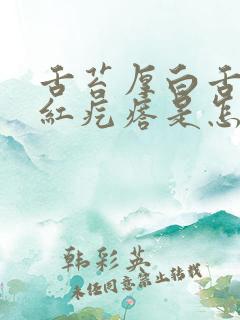 舌苔厚白舌
红疙瘩是怎
韩彩英
未经同意禁止转载